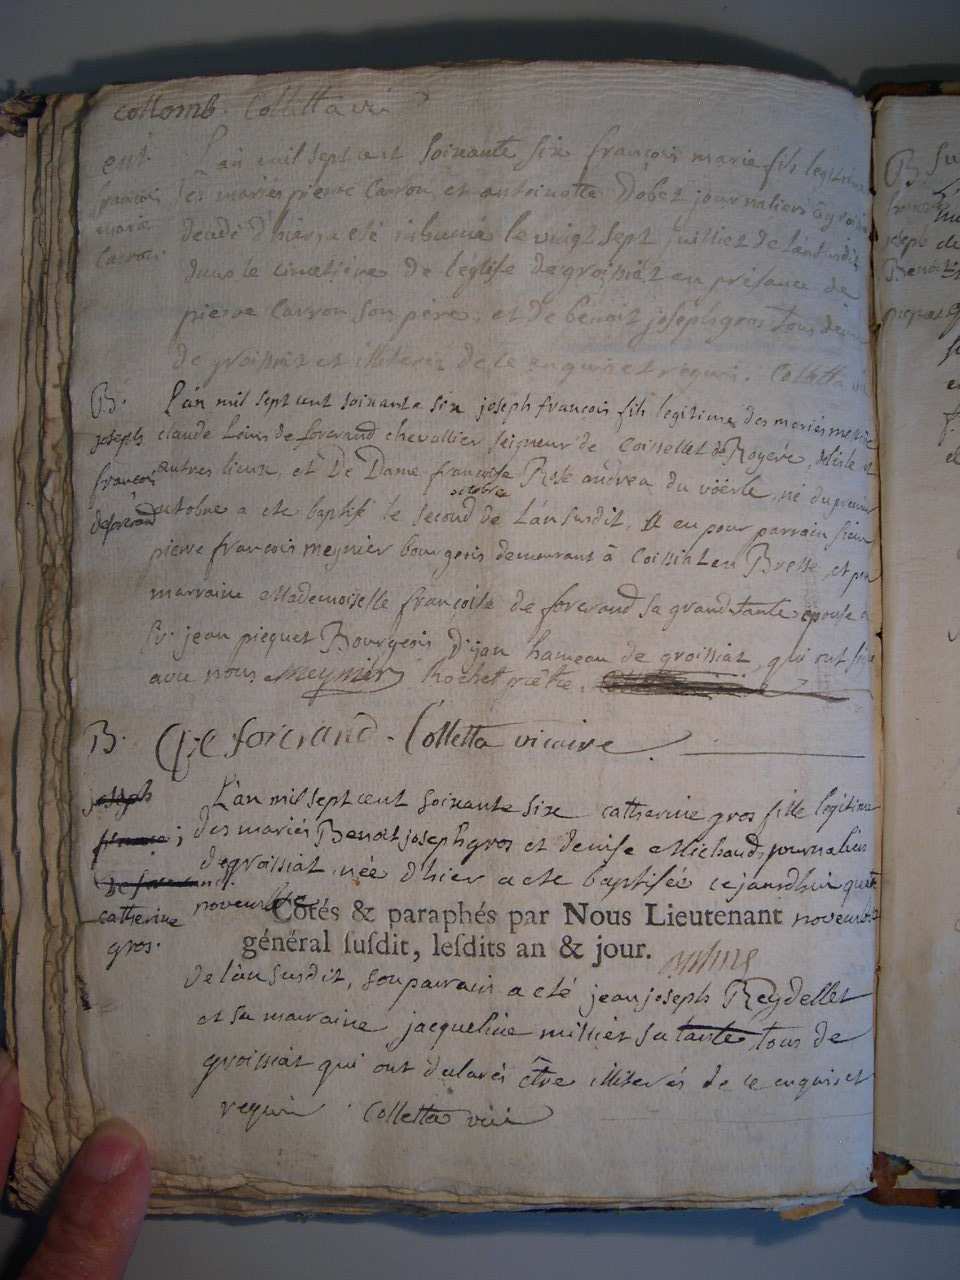 collomb. Colletta vic
ent. L'an mil sept cent soixante six françois marie fils legitime
françois des mariés pierre Carron et antoinette Dobet journaliers à groissia
marie decedé d'hier a eté inhumé le vingt sept juilliet de l'an susdit
Carron dans le cimetiere de l'église de groissiat en présence de
pierre Carron son père, et de benoit joseph gros tous deux
de groissiat et illiterés de ce enquis et requis. Colletta vic
B. L'an mil sept cent soixante six joseph françois fils legitime des mariés messire
joseph claude Louis de forcrand chevallier seigneur de Coissellet de Royére, delisle et
françois autres lieux, et De Dame françoise Rose andréa du vöerle, né du premier
octobre
deforcrand octobre a ete baptisé le second de L'an susdit, Il a eu pour parrain sieur
pierre françois meynier bourgeois demeurant à Coissiat en Bresse, et pour
marraine Mademoiselle françoise de forcrand sa grand tante epouse a
Sr. jean piequet Bourgeois D'ijan hameau de groissiat, qui ont signé
avec nous Meynier hochet prêtre.
B. De forcrand. Colletta vicaire
joseph L'an mil sept cent soixante six catherine gros fille legitime
des mariés Benoit joseph gros et denise Michaud, journaliers
De forcrand. de groissiat, née d'hier a ete baptisée ce jourdhui quatre
catherine novembre Cotés & paraphés par Nous Lieutenant novembre
gros. général susdit, lesdits an & jour.
de l'an susdit, son parrain a eté jean joseph Reydellet
et sa marraine jacqueline millet sa tante, tous de
groissiat qui ont declarés être illiterés de ce enquis et
requis Colletta vic